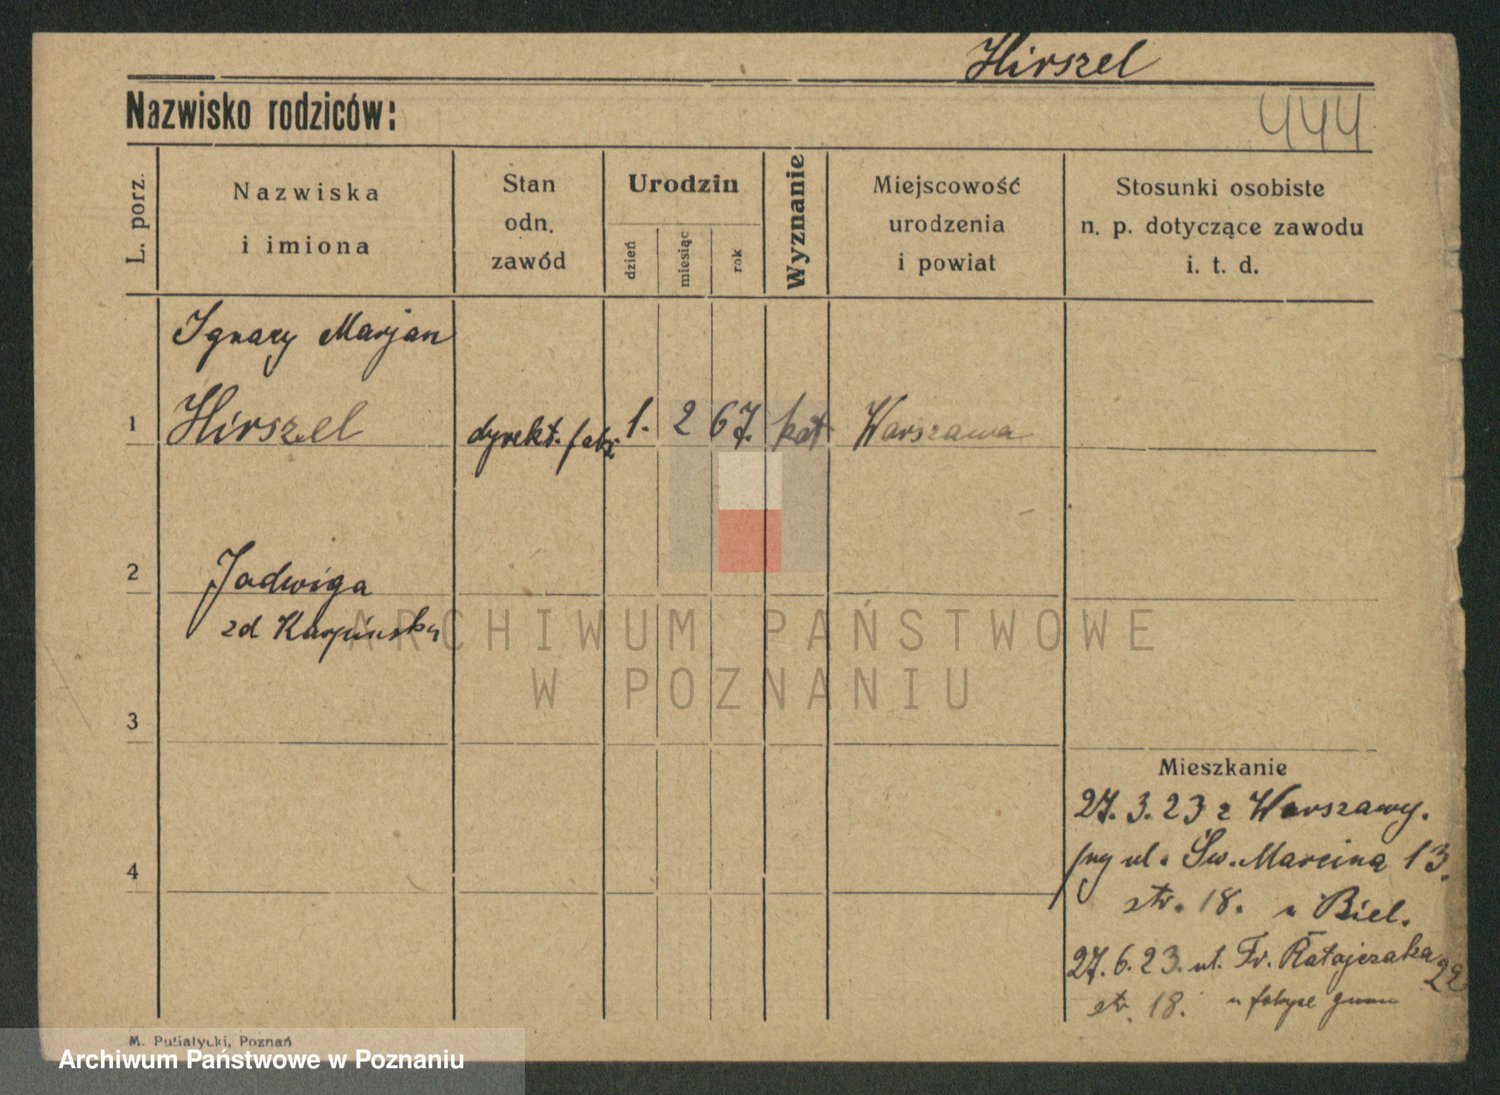 Hirszel
Nazwisko rodziców:
444
L. porz.
Nazwiska
i imiona
Stan
odn.
zawód
Urodzin
dzień
miesiąc
rok
Wyznanie
Miejscowość
urodzenia
i powiat
Stosunki osobiste
n. p. dotyczące zawodu
i. t. d.
Ignacy Marjan
1 Hirszel dyrekt. fabr 1. 2 67. kat Warszawa
2 Jadwiga
zd Karpińska
ARCHIWUM PAŃSTWOWE
W POZNANIU
3
Mieszkanie
27. 3. 23 z Warszawy.
ul. Św. Marcina 13.
4
str. 18. u Biel.
27. 6. 23. ul. Fr. Ratajczaka 22
str. 18. u
M. Putiatycki, Poznań
Archiwum Państwowe w Poznaniu